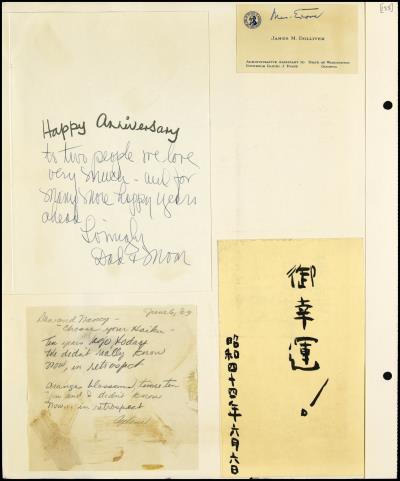 [55]
Mrs. Evans
JAMES M. DOLLIVER
ADMINISTRATIVE ASSISTANT TO
GOVERNOR DANIEL J. EVANS
STATE OF WASHINGTON
OLYMPIA
Happy Anniversary
to two people we love
very much - and for
many more happy years
ahead
Lovingly
Dad & Mom
June 6, 69
Dan and Nancy -
Choose your Haiku -
Ten years ago today
the didn't really know
Now, in retrospect
Orange blossoms, times ten
You and I didn't know
Now in retrospect
御幸運!
昭和四十四年六月六日